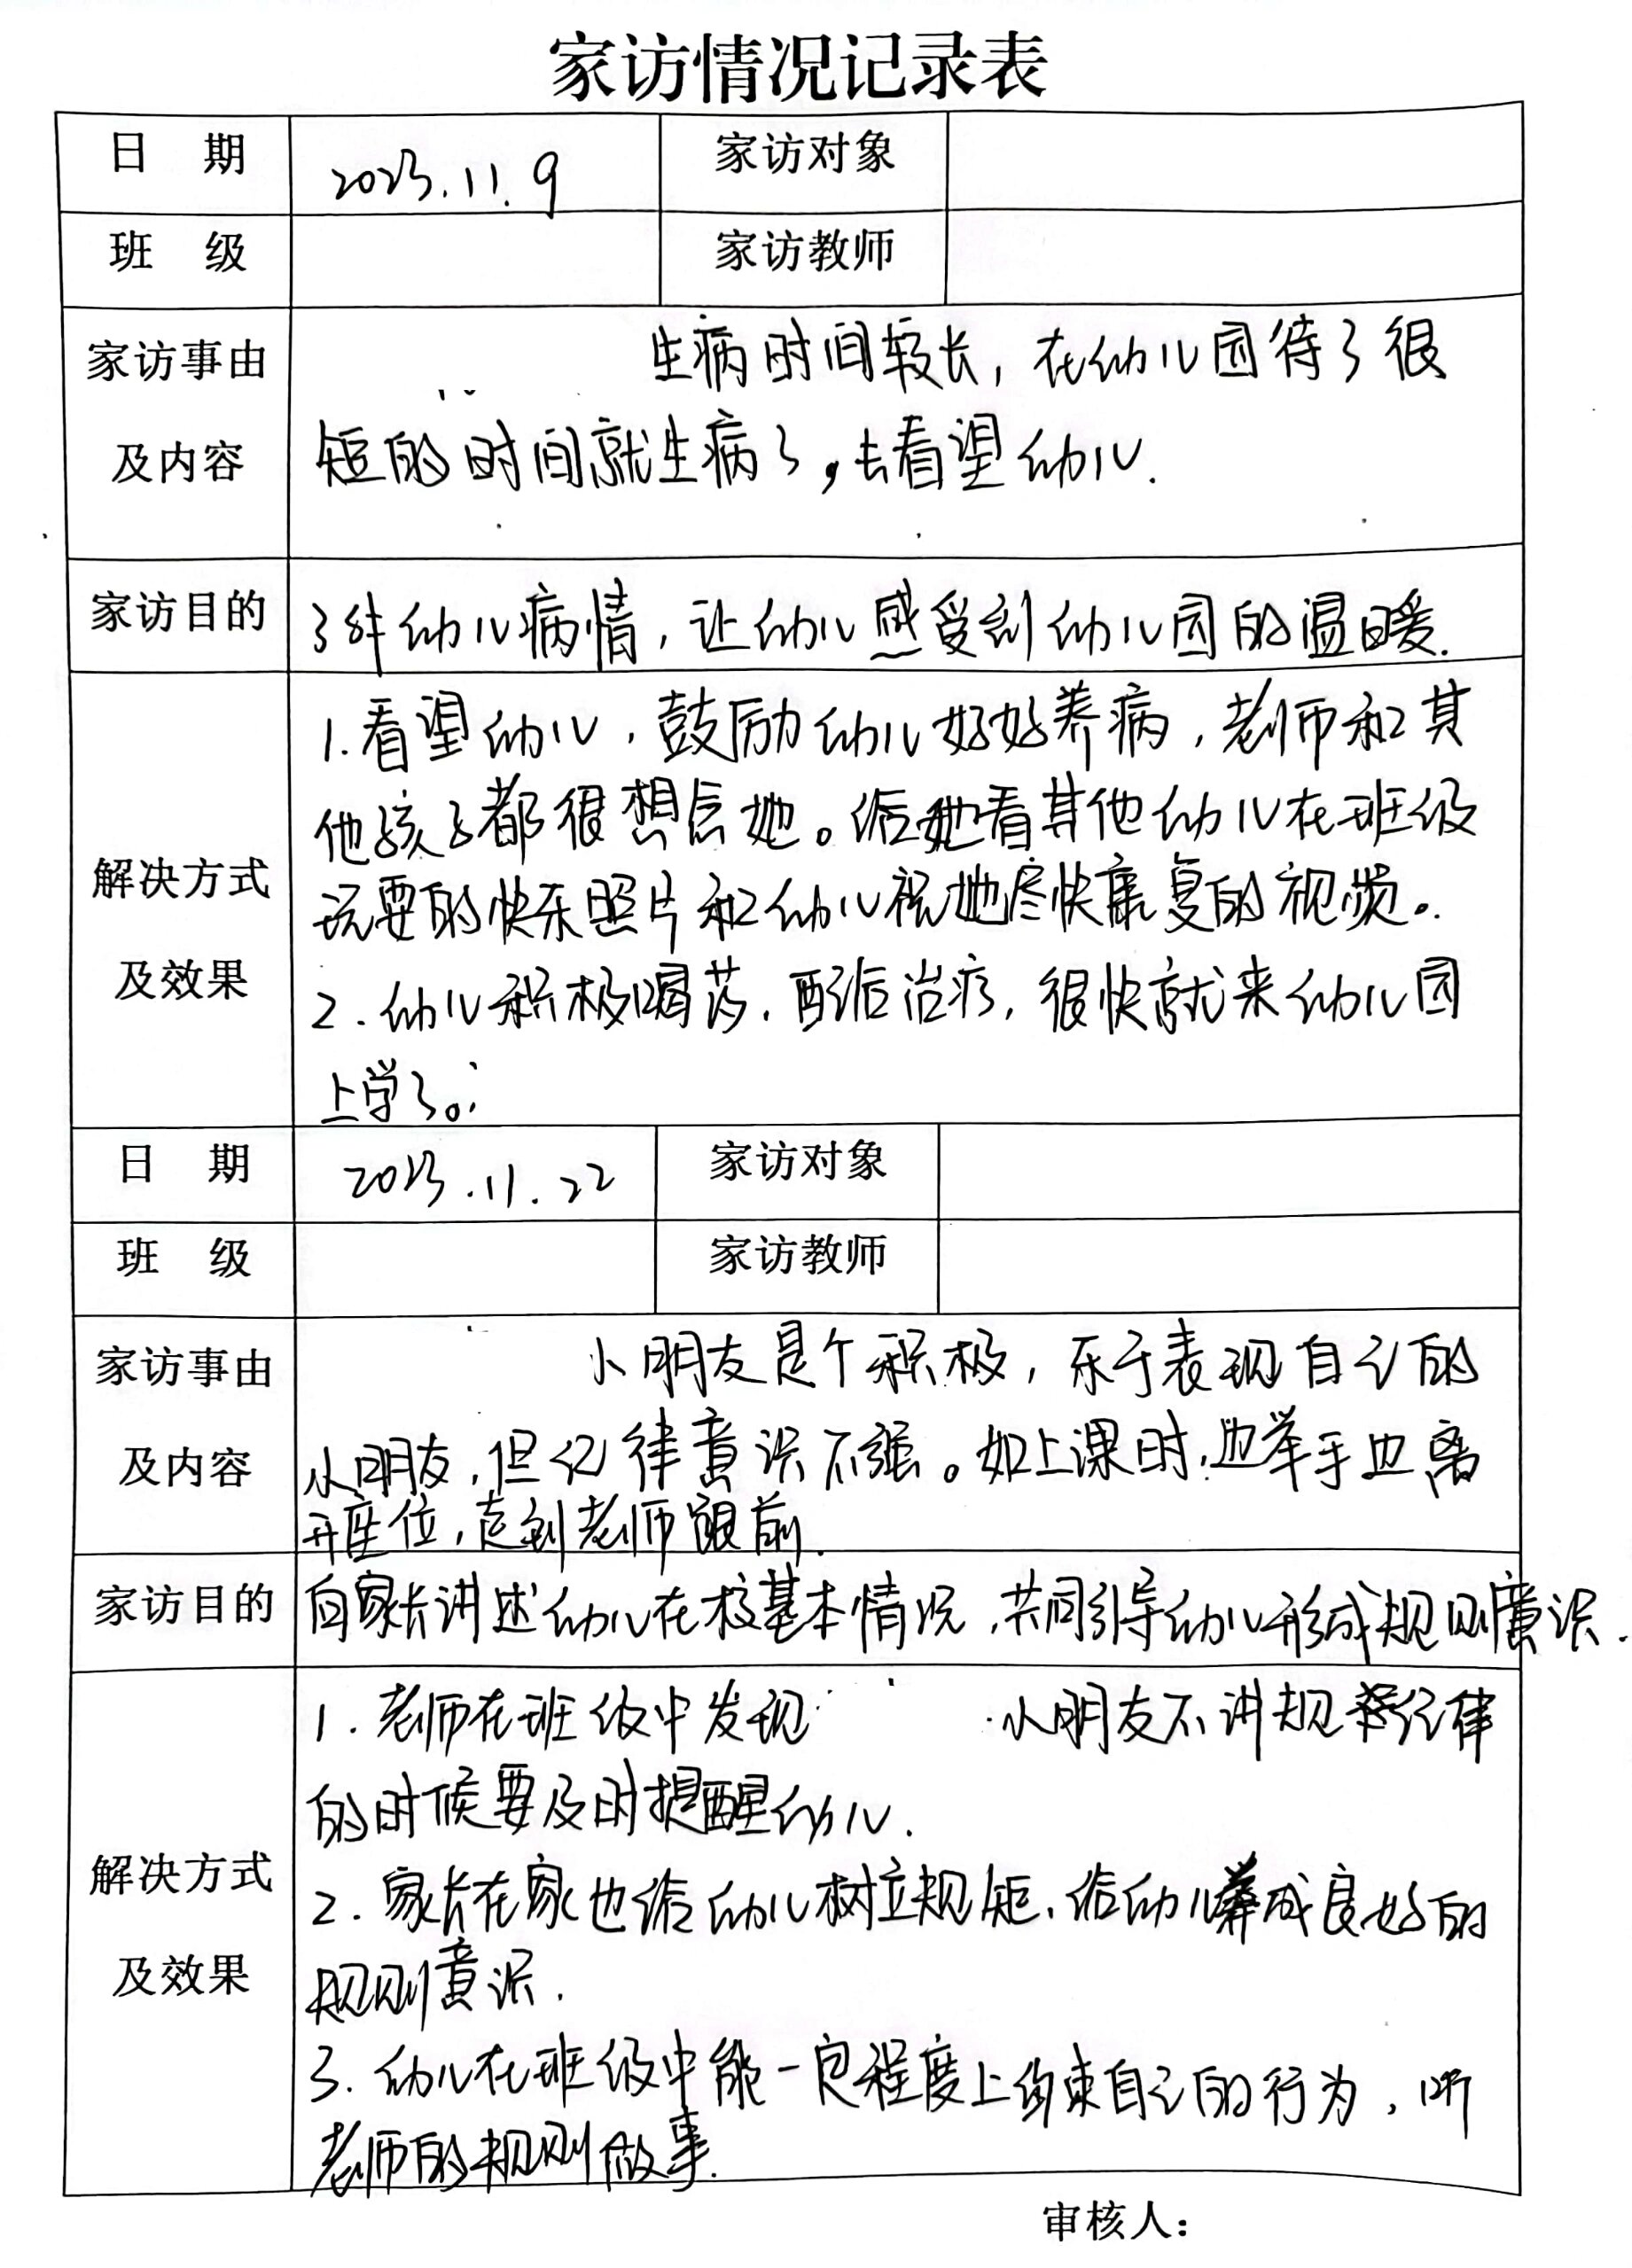 家访情况记录表
日 期 2023.11.9 家访对象
班 级 家访教师
家访事由 生病时间较长，在幼儿园待了很
及内容 短的时间就生病了，去看望幼儿.
家访目的 了解幼儿病情，让幼儿感受到幼儿园的温暖.
1.看望幼儿，鼓励幼儿好好养病，老师和其
他孩子都很想念她。给她看其他幼儿在班级
解决方式 玩耍的快乐照片和幼儿祝她尽快康复的视频。
及效果 2.幼儿积极喝药，配合治疗，很快就来幼儿园
上学了。
日 期 2023.11.22 家访对象
班 级 家访教师
家访事由 小朋友是个积极，乐于表现自己的
及内容 小朋友，但纪律意识不强。如上课时，边举手边离
开座位，走到老师跟前.
家访目的 向家长讲述幼儿在校基本情况，共同引导幼儿形成规则意识.
1.老师在班级中发现 小朋友不讲规 纪律
的时候要及时提醒幼儿.
解决方式 2.家长在家也给幼儿树立规矩，给幼儿养成良好的
及效果 规则意识.
3.幼儿在班级中能一定程度上约束自己的行为，听
老师的规则做事.
审核人：